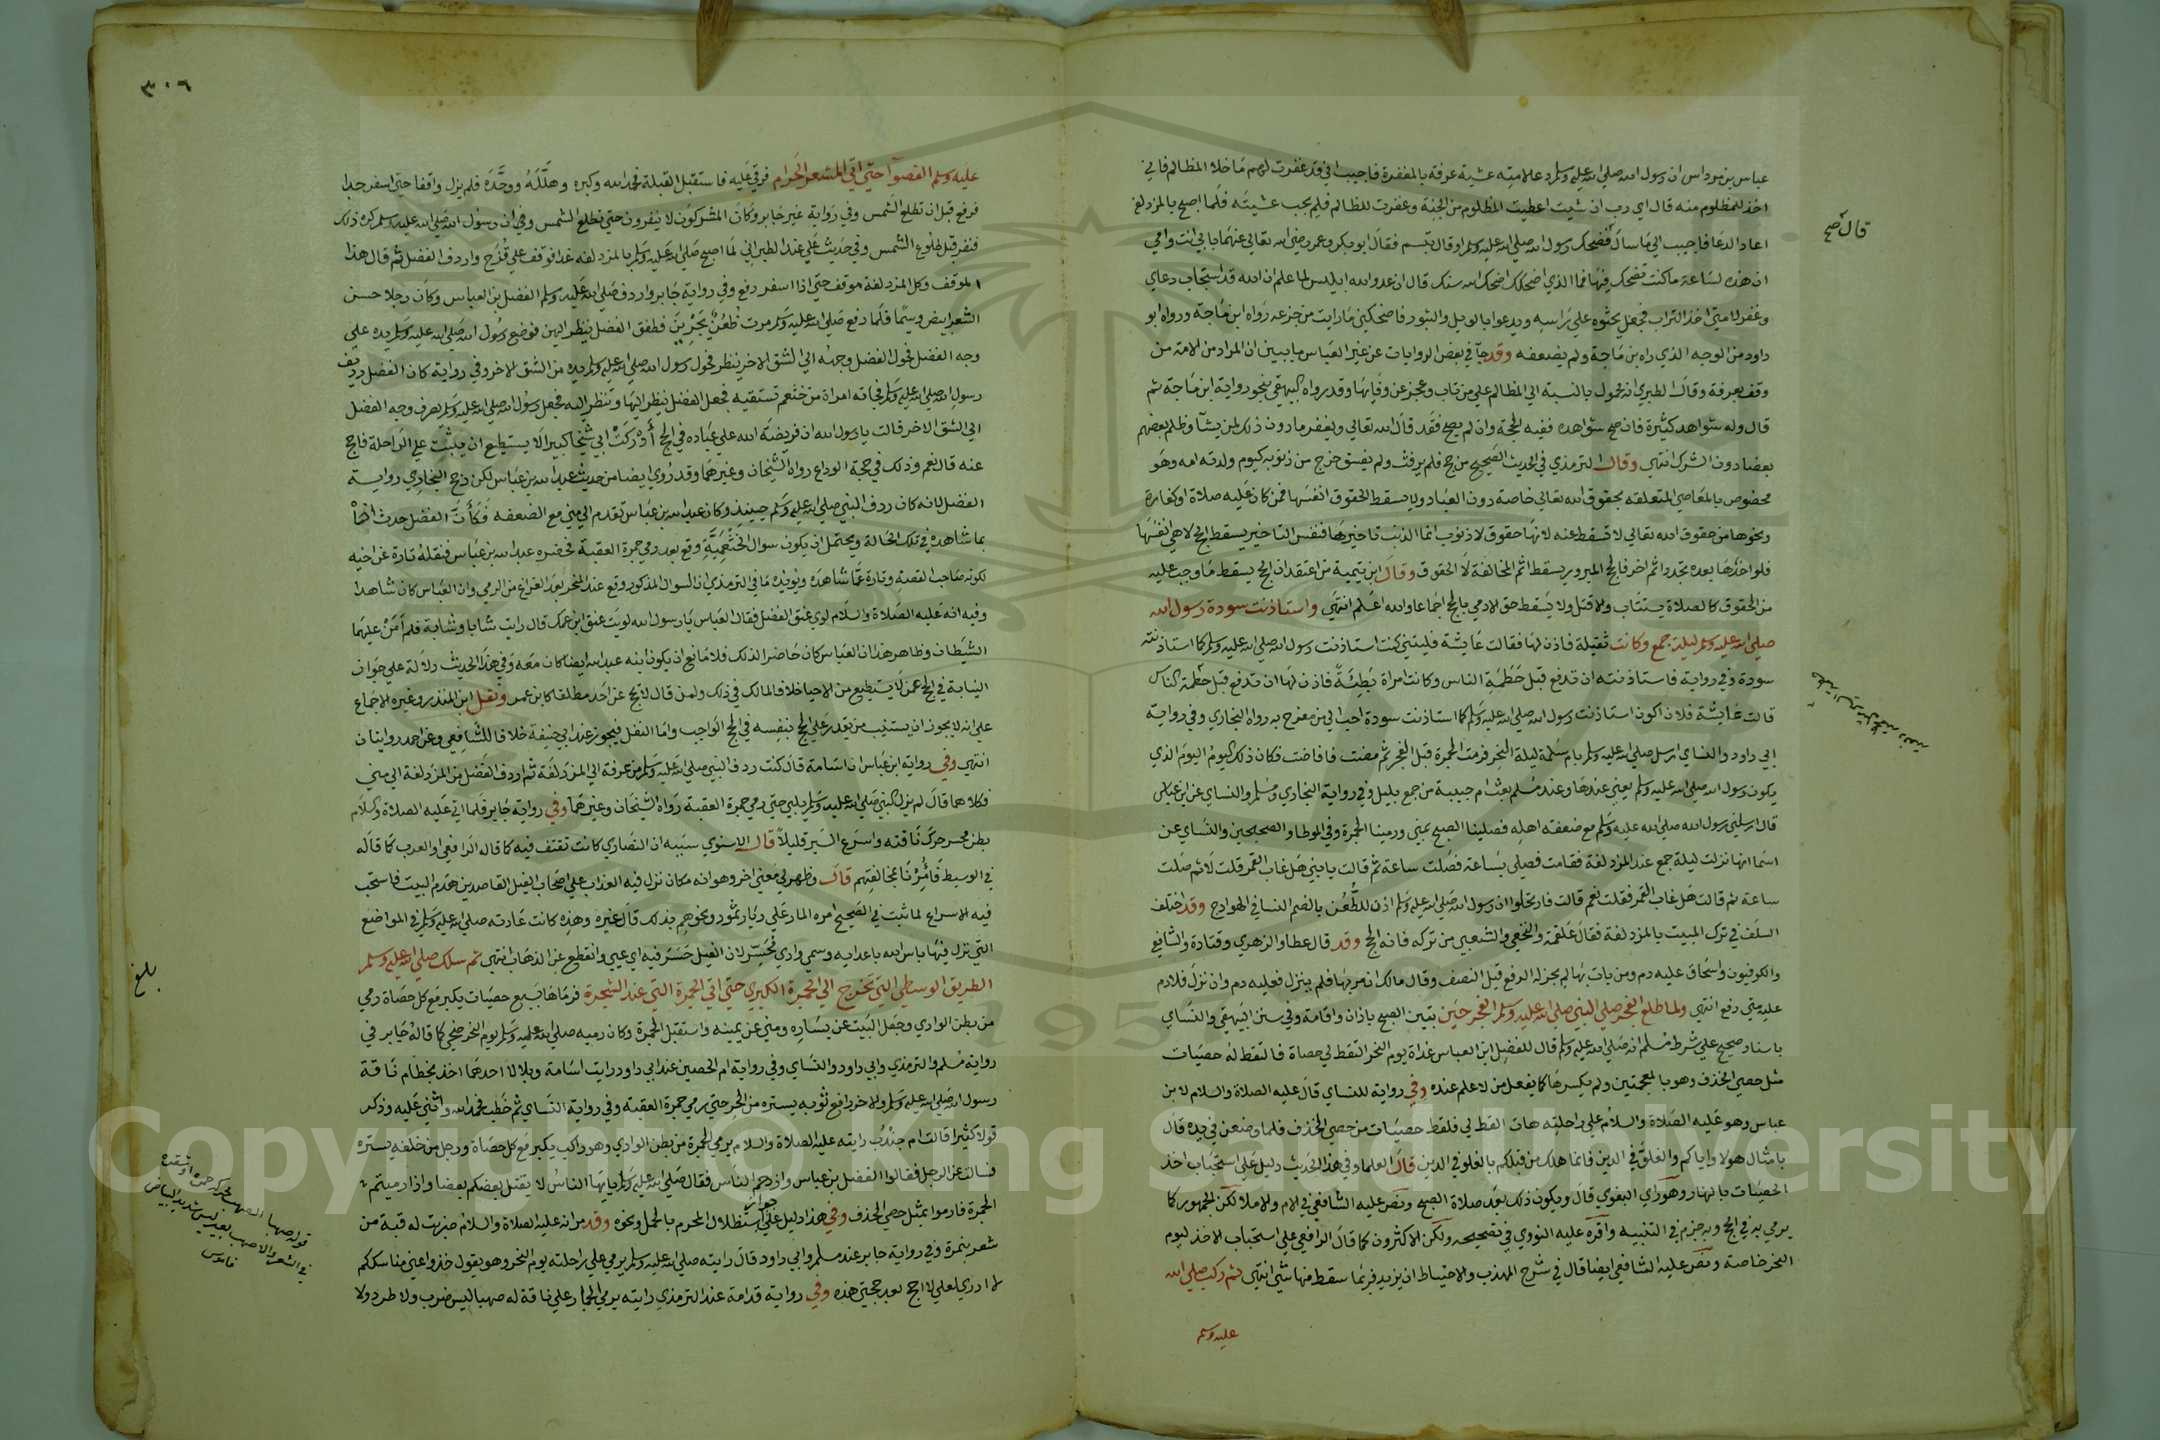 عباس بن مرداس ان رسول الله صلى الله عليه وسلم دعا لامته عشية عرفة بالمغفرة فاجيب اني قد غفرت لهم ما خلا المظالم فاني
اخذ للمظلوم منه قال اي رب ان شيت اعطيت المظلوم من الجنة وغفرت للظالم فلم يجب عشيته فلما اصبح بالمزدلفة
اعاد الدعا فاجيب الي ما سال فضحك رسول الله صلى الله عليه وسلم او قال تبسم فقال ابو بكر وعمر رضي الله تعالي عنهما بابي انت وامي
ان هذه لساعة ما كنت تضحك فيها فما الذي اضحكك اضحك الله سنك قال ان عدو الله ابليس لما علم ان الله قد استجاب دعاي
وغفر لامتي اخذ التراب فجعل يحثوه على راسه ويدعوا بالويل والثبور فاضحكني ما رايت من جزعه رواه ابن ماجة ورواه ابو
داود من الوجه الذي رواه بن ماجة ولم يضعفه وقد جآ في بعض الروايات عن غير العباس ما يبين ان المراد من الامة من
وقف بعرفة وقال الطبري انه محمول بالنسبة الي المظالم علي من تاب وعجز عن وفايها وقد رواه البيهقي بنحو رواية ابن ماجة ثم
قال وله شواهد كثيرة فان صح شواهده ففيه الحجة وان لم يصح فقد قال الله تعالي ويغفر ما دون ذلك لمن يشآ وظلم بعضهم
بعضا دون الشرك انتهى وقال الترمذي في الحديث الصحيح من حج فلم يرفث ولم يفسق خرج من ذنوبه كيوم ولدته امه وهو
مخصوص بالمعاصي المتعلقه بحقوق الله تعالي خاصة دون العباد ولا يسقط الحقوق انفسها فمن كان عليه صلاة او كفارة
ونحوها من حقوق الله تعالي لا تسقط عنه لانها حقوق لا ذنوب انما الذنب تاخيرها فنفس التاخير يسقط بالحج لا هي انفسها
فلو اخذها بعده تجدد اثم اخر فالحج المبرور يسقط اثم المخالفة لا الحقوق وقال ابن تيمية من اعتقد ان الحج يسقط ما وجب عليه
من الحقوق كالصلاة يستتاب والا قتل ولا يسقط حق الادمي بالحج اجماعا والله اعلم انتهى واستاذنت سودة رسول الله
صلى الله عليه وسلم ليلة جمع وكانت ثقيلة فاذن لها فقالت عايشة فليتني كنت استاذنت رسول الله صلى الله عليه وسلم كما استاذنته
سودة وفي رواية فاستاذنته ان تدفع قبل حطمة الناس وكانت امراة بطيئة فاذن لها ان تدفع قبل حطمة الناس
قالت عايشة فلان اكون استاذنت رسول الله صلى الله عليه وسلم كما استاذنت سودة احب الي من مفرح به رواه البخاري وفي رواية
ابي داود والنساي ارسل صلى الله عليه وسلم بام سلمة ليلة النحر فرمت الجمرة قبل الفجر ثم مضت فافاضت فكان ذلك اليوم اليوم الذي
يكون رسول الله صلى الله عليه وسلم يعني عندها وعند مسلم بعث ام حبيبة من جمع بليل وفي رواية البخاري ومسلم والنساي عن ابن عباس
قال ارسلني رسول الله صلى الله عليه وسلم مع ضعفة اهله فصلينا الصبح بمنى ورمينا الجمرة وفي الموطا والصحيحين والنساي عن
اسما انها نزلت ليلة جمع عند المزدلفة فقامت فصلي ساعة فصلت ساعة ثم قالت يا بني هل غاب القمر قلت لا ثم صلت
ساعة ثم قالت هل غاب القمر فقلت نعم قالت فارتحلوا ان رسول الله صلى الله عليه وسلم اذن للظعن بالضم النسا في الهوادج وقد اختلف
السلف في ترك المبيت بالمزدلفة فقال علقمة والنخعي والشعبي من تركه فاته الحج وقد قال عطا والزهري وقتادة والشافعي
والكوفيون واسحاق عليه دم ومن بات بها لم يجز له الدفع قبل النصف وقال مالك ان مر بها فلم ينزل فعليه دم وان نزل فلا دم
عليه متى دفع انتهى ولما طلع الفجر صلى النبي صلى الله عليه وسلم الفجر حين تبين الصبح باذان واقامة وفي سنن البيهقي والنساي
باسناد صحيح علي شرط مسلم انه صلى الله عليه وسلم قال للفضل ابن العباس غداة يوم النحر التقط لي حصاة فالتقط له حصيات
مثل حصى الخذف وهو بالمعجمتين ولم يكسرها كما يفعل من لا علم عنده وفي رواية للنساي قال عليه الصلاة والسلام لابن
عباس وهو عليه الصلاة والسلام علي راحلته هات القط لي فلقط حصيات من حصي الخذف فلما وضعن في يده قال
بامثال هولا واياكم والغلو في الدين فانما هلك من قبلكم بالغلو في الدين قال العلما وفي هذا الحديث دليل علي استحباب اخذ
الحصيات بالنهار وهو راي البغوي قال ويكون ذلك بعد صلاة الصبح ونص عليه الشافعي في الام والاملا لكن الجمهور كما
يرمي به في الحج وبه جزم في التنبيه واقره عليه النووي في تصحيحه ولكن الاكثرون كما قال الرافعي علي استحباب الاخذ ليوم
النحر خاصة ونص عليه الشافعي ايضا قال في شرح المهذب والاحتياط ان يزيد فربما سقط منها شي انتهى ثم ركب صلى الله
عليه وسلم
قال صح
٣٠٦
عليه وسلم القصوآ حتي اتي المشعر الحرام فرقي عليه فاستقبل القبلة فحمد الله وكبره وهلله ووحده فلم يزل واقفا حتي اسفر جدا
فدفع قبل ان تطلع الشمس وفي رواية غير جابر وكان المشركون لا ينفرون حتي تطلع الشمس وفي ان رسول الله صلى الله عليه وسلم كره ذلك
فنفر قبل طلوع الشمس وفي حديث علي عند الطبراني لما اصبح صلى الله عليه وسلم بالمزدلفه غدا فوقف علي قزح واردف الفضل ثم قال هذا
الموقف وكل المزدلفة موقف حتي اذا اسفر دفع وفي رواية جابر واردف صلى الله عليه وسلم الفضل بن العباس وكان رجلا حسن
الشعر ابيض وسيما فلما دفع صلى الله عليه وسلم مرت ظعن يجرين فطفق الفضل ينظر اليهن فوضع رسول الله صلى الله عليه وسلم يده علي
وجه الفضل فحول الفضل وجهه الي الشق الاخر ينظر فحول رسول الله صلى الله عليه وسلم يده من الشق الاخر وفي رواية كان الفضل رديف
رسول الله صلى الله عليه وسلم فجاته امراة من خثعم تستفتيه فجعل الفضل ينظر اليها وتنظر اليه فجعل رسول الله صلى الله عليه وسلم يصرف وجه الفضل
الي الشق الاخر قالت يا رسول الله ان فريضة الله علي عباده في الحج أدركت ابي شيخا كبيرا لا يستطيع ان يثبت علي الراحلة فاحج
عنه قال نعم وذلك في حجة الوداع رواه الشيخان وغيرهما وقد روي ايضا من حديث عبد الله بن عباس لكن رجح البخاري رواية
الفضل لانه كان ردف النبي صلى الله عليه وسلم حينيذ وكان عبد الله بن عباس تقدم الي مني مع الضعفه فكأن الفضل حدث اخاه
بما شاهده في تلك الحالة ويحتمل ان يكون سوال الخثعمية وقع بعد رمي جمرة العقبة فحضره عبد الله بن عباس فنقله تارة عن اخيه
لكونه صاحب القصة وتارة عما شاهده ويويده ما في الترمذي ان السوال المذكور وقع عند المنحر بعد الفراغ من الرمي وان العباس كان شاهدا
وفيه انه عليه الصلاة والسلام لوي عنق الفضل فقال العباس يا رسول الله لويت عنق ابن عمك قال رايت شابا وشابة فلم آمن عليهما
الشيطان وظاهر هذا ان العباس كان حاضرا لذلك فلا مانع ان يكون ابنه عبد الله ايضا كان معه وفي هذا الحديث دلالة علي جواز
النيابة في الحج عمن لا يستطيع من الاحيا خلافا لمالك في ذلك ولمن قال لا يحج عن احد مطلقا كابن عمر ونقل ابن المنذر وغيره الاجماع
علي انه لا يجوز ان يستنيب من يقدر علي الحج بنفسه في الحج الواجب واما النفل فيجوز عند ابي حنيفة خلافا للشافعي وعن احمد روايتان
انتهى وفي رواية ابن عباس ان اسامة قال كنت ردف النبي صلى الله عليه وسلم من عرفة الي المزدلفة ثم اردف الفضل من المزدلفة الي مني
فكلاهما قال لم يزل النبي صلى الله عليه وسلم يلبي حتي رمي جمرة العقبة رواه الشيخان وغيرهما وفي رواية جابر فلما اتي عليه الصلاة والسلام
بطن محسر حرك ناقته واسرع السير قليلا قال الاسنوي سببه ان النصاري كانت تقف فيه كما قاله الرافعي او العرب كما قاله
في الوسيط فأمرنا بمخالفتهم قال وظهر لي معني اخر وهو انه مكان نزل فيه العذاب علي اصحاب الفيل القاصدين هدم البيت فاستحب
فيه الاسراع لما ثبت في الصحيح امره المار علي ديار ثمود ونحوهم بذلك قال غيره وهذه كانت عادته صلى الله عليه وسلم في المواضع
التي نزل فيها باس الله باعدايه وسمي وادي محسر لان الفيل حسر فيه اي عيي وانقطع عن الذهاب انتهى ثم سلك صلى الله عليه وسلم
الطريق الوسطي التي تخرج الي الجمرة الكبري حتي اتي الجمرة التي عند الشجرة فرماها بسبع حصيات يكبر مع كل حصاة رمي
من بطن الوادي وجعل البيت عن يساره ومني عن يمينه واستقبل الجمرة وكان رميه صلى الله عليه وسلم يوم النحر ضحي كما قاله جابر في
رواية مسلم والترمذي وابي داود والنساي وفي رواية ام الحصين عند ابي داود رايت اسامة وبلالا احدهما اخذ بخطام ناقة
رسول الله صلى الله عليه وسلم والاخر رافع ثوبه يستره من الحر حتي رمي جمرة العقبة وفي رواية النساي ثم خطب فحمد الله واثني عليه وذكر
قولا كثيرا قالت ام جندب رايته عليه الصلاة والسلام يرمي الجمرة من بطن الوادي وهو راكب يكبر مع كل حصاة ورجل من خلفه يستره
فسالت عن الرجل فقالوا الفضل بن عباس وازدحم الناس فقال صلى الله عليه وسلم يا يها الناس لا يقتل بعضكم بعضا واذا رميتم
الجمرة فارموا بمثل حصي الخذف وفي هذا دليل علي جواز استظلال المحرم بالمحمل ونحوه وقد مر انه عليه الصلاة والسلام ضربت له قبة من
شعر بنمرة وفي رواية جابر عند مسلم وابي داود قال رايته صلى الله عليه وسلم يرمي علي راحلته يوم النحر وهو يقول خذوا عني مناسككم
لا ادري لعلي لا احج بعد حجتي هذه وفي رواية قدامة عند الترمذي رايته يرمي الجمار علي ناقة له صهبا ليس ضرب ولا طرد ولا
بلغ
قوله صهبا الصهب محركة حمرة او شقرة
في الشعر والاصهب بعير ليس بشديد البياض
قاموس
Copyright © King Saud University
1957